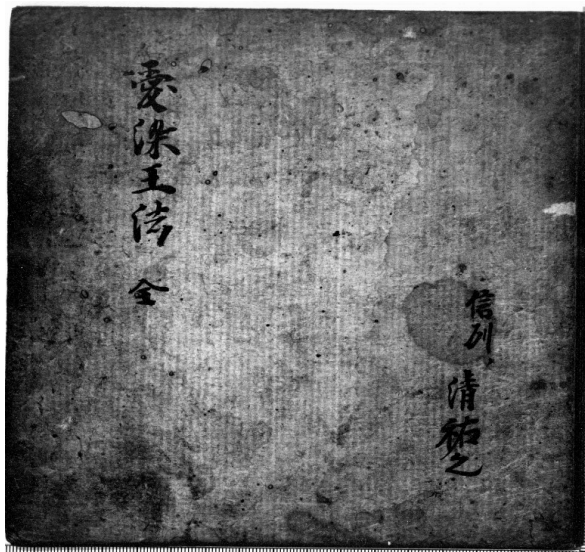 愛染王法 全
信列 清祐之